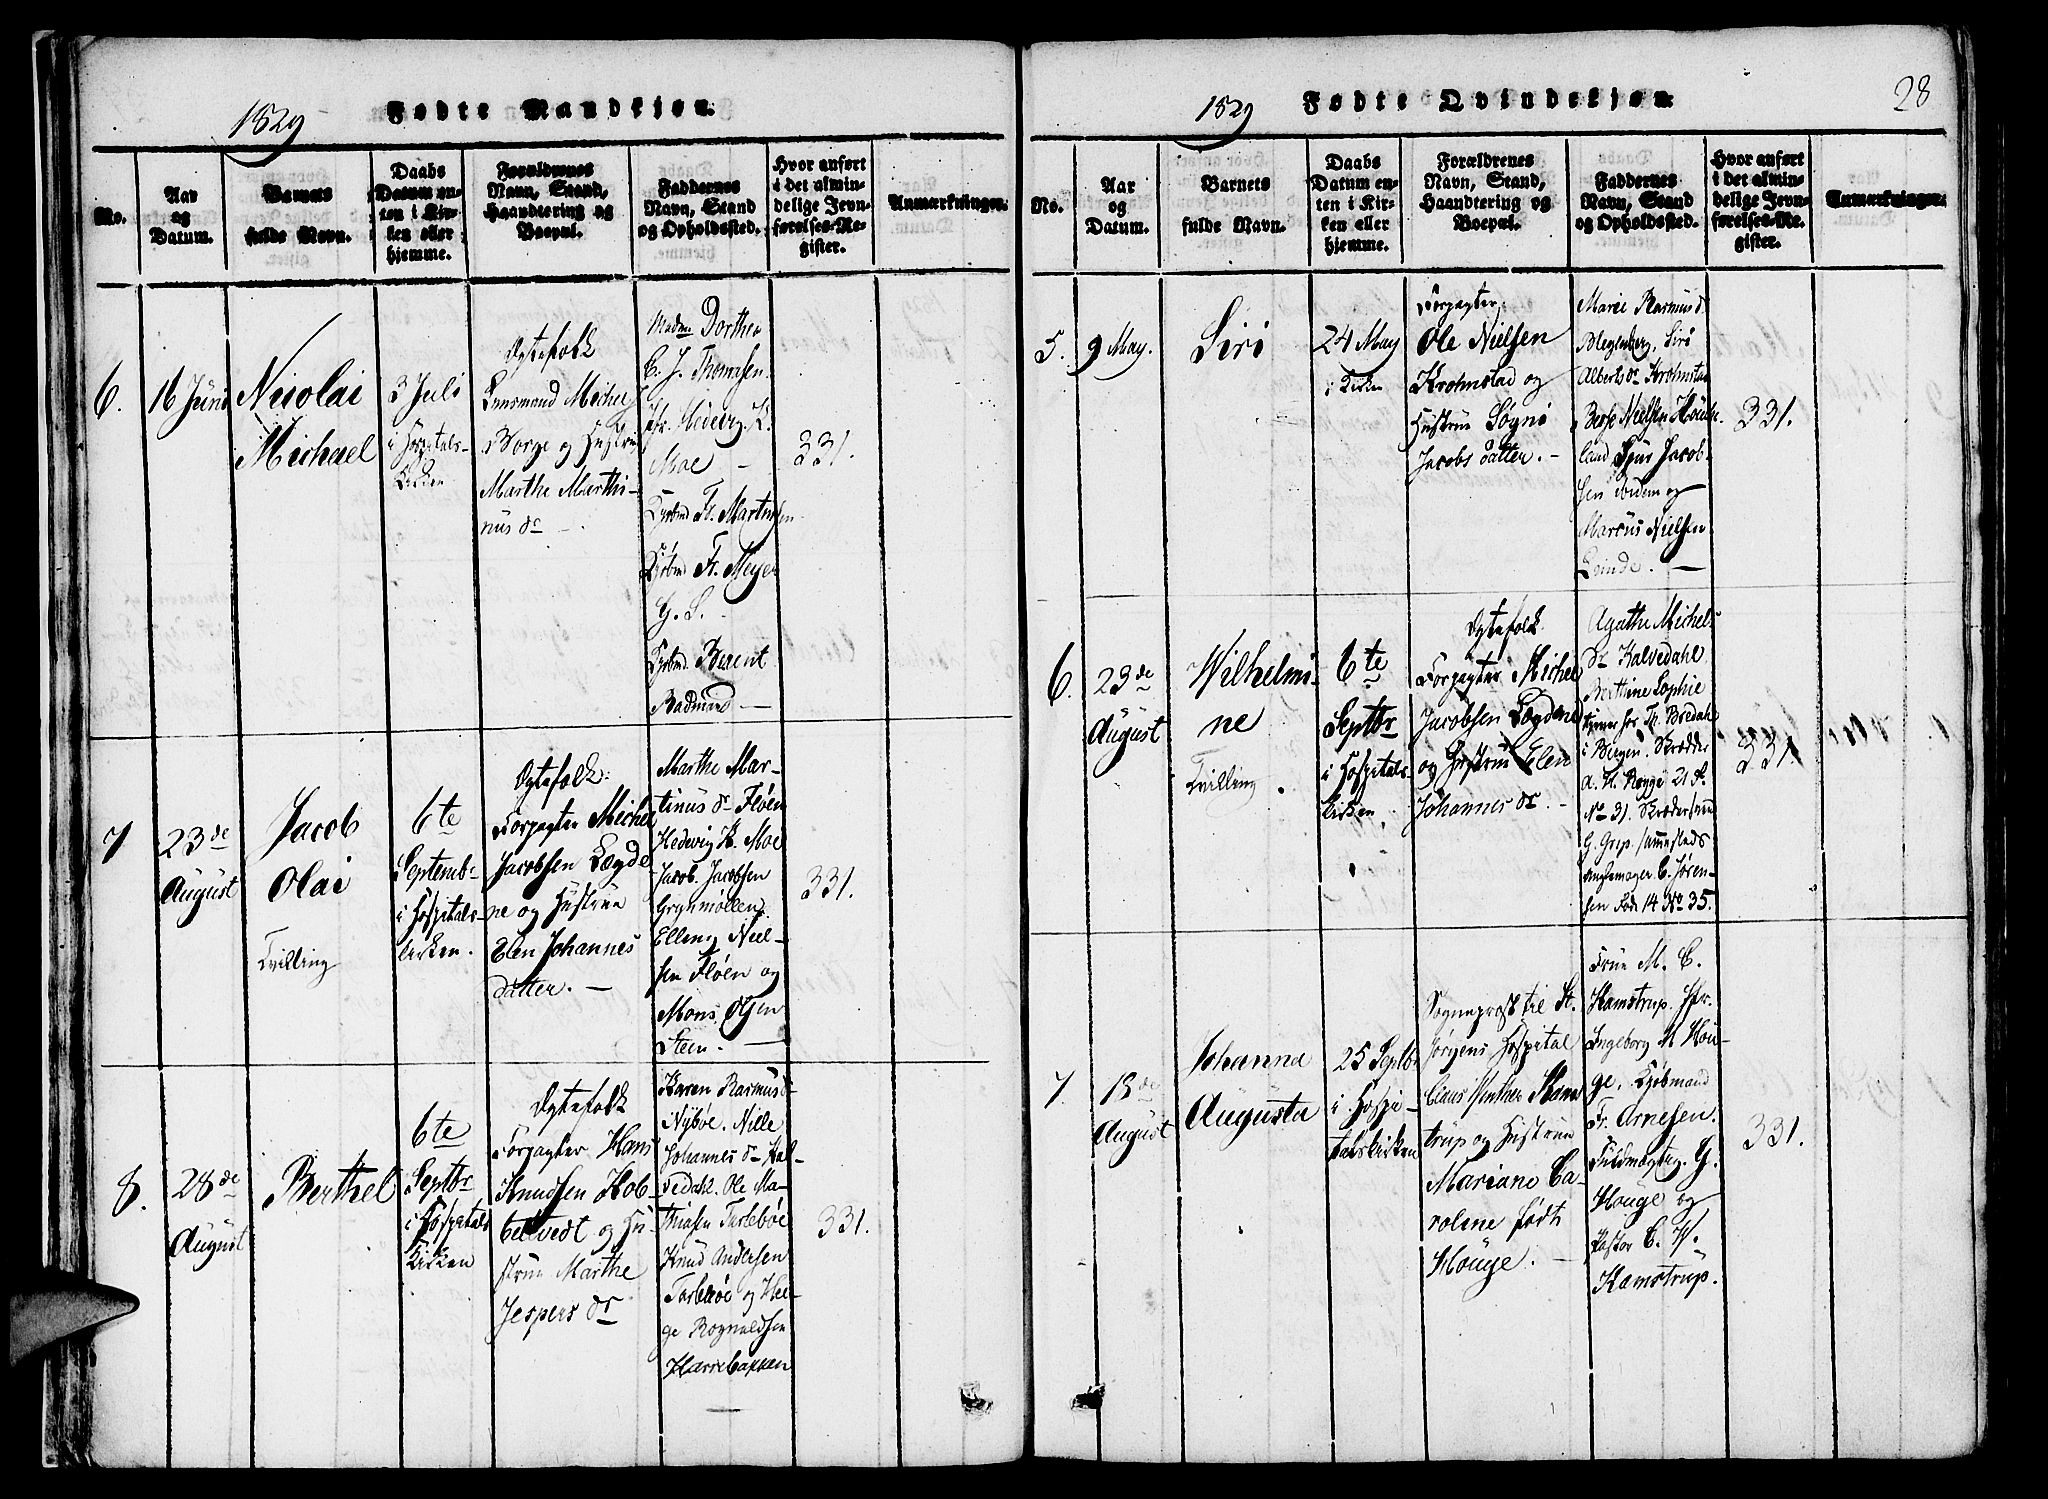 1829
Fødte Mandkjøn.
No.
Aar
og
Datum.
Barnets
fulde Navn.
Daabs
Datum en-
ten i Kir-
ken eller
hjemme.
Forældrenes
Navn, Stand,
Haandtering og
Boepæl.
Faddernes
Navn, Stand
og Opholdssted.
Hvor anført
i det almin-
delige Jevn-
førelses-Re-
gister.
Anmærkninger.
6.
16 Juni
Nicolai
Michael
3 Juli
i Hospitals-
Kirken
Egtefolk
Lensmand Michel
Borge og Hustru
Marthe Marthi-
nus dr
Madm Dorthea
C. J. Thomsen.
Jfr. Hedevig K.
Moe
Kjøbmd Fr. Martensen
Kjøbmd Fr. Meyer
G. S.
Kjøbmd Berent
Rodmand
331.
7
23de
August
Jacob
Olai
Tvilling
6te
Septembr
i Hospitals-
kirken.
Egtefolk:
Forpagter Michel
Jacobsen Lægde-
ne og Hustrue
Elen Johannes
datter.
Marthe Mar-
tinus dr Fløen
Hedevig K. Moe
Jacob. Jacobsen
Grynmøllen.
Elling Niel-
sen Fløen og
Mons Olsen
Steen.
331.
8.
28de
August
Berthel
6te
Septbr
i Hospitals
Kirken
Egtefolk
Forpagter Hans
Knudsen Hob-
belvedt og Hu-
strue Marthe
Jespers dr
Karen Rasmusd
Nybøe. Nille
Johannes dr Kal-
vedahl. Ole Ma-
thiasen Tarlebøe
Knud Andersen
Tarlebøe og Hel-
ge Rognaldsen
331.
1829
Fødte Qvindekjøn.
28
No.
Aar
og
Datum.
Barnets
fulde Navn.
Daabs
Datum en-
ten i Kir-
ken eller
hjemme.
Forældrenes
Navn, Stand,
Haandtering og
Boepæl.
Faddernes
Navn, Stand
og Opholdssted.
Hvor anført
i det almin-
delige Jevn-
førelses-Re-
gister.
Anmærkninger.
5.
9 May.
Siri
24 May
i Kirken
Forpagter
Ole Nielsen
Krohnstad og
Hustrue Søgni
Jacobs datter.
Marie Rasmusd
Siri
Alberts dr Krohnstad
Nielsen Houk-
land Sjur Jacob-
sen ibidem og
Marcus Nielsen
331.
6.
23de
August
Wilhelmi-
ne
Tvilling
6te
Septbr
i Hospitals-
kirken.
Egtefolk
Forpagter Michel
Jacobsen Lægdene
og Hustrue Elen
Johannes dr.
Agathe Michels
dr Kalvedahl
Berthine Sophie
tjener hos Th. Bredahl
i Bergen. Skrædder
A. H. Rogge 21 R.
No 31. Skræddersvend
G. Grip. sammesteds
C. Jøren-
sen Rode 14 No 35.
331.
7
18de
August
Johanna
Augusta
25 Septbr
i Hospi-
talskirken
Sognepræst til St.
Jørgens Hospital
Claus Winther Kam-
trup og Hustrue
Mariane Ca-
roline født
Houge.
Frue M. C.
Kamstrup. Jfr.
Ingeborg M Hou-
ge, Kjøbmand
Fr. Arnesen.
Fuldmægtig. G.
Houge og
Pastor C. W.
Kamstrup.
331.